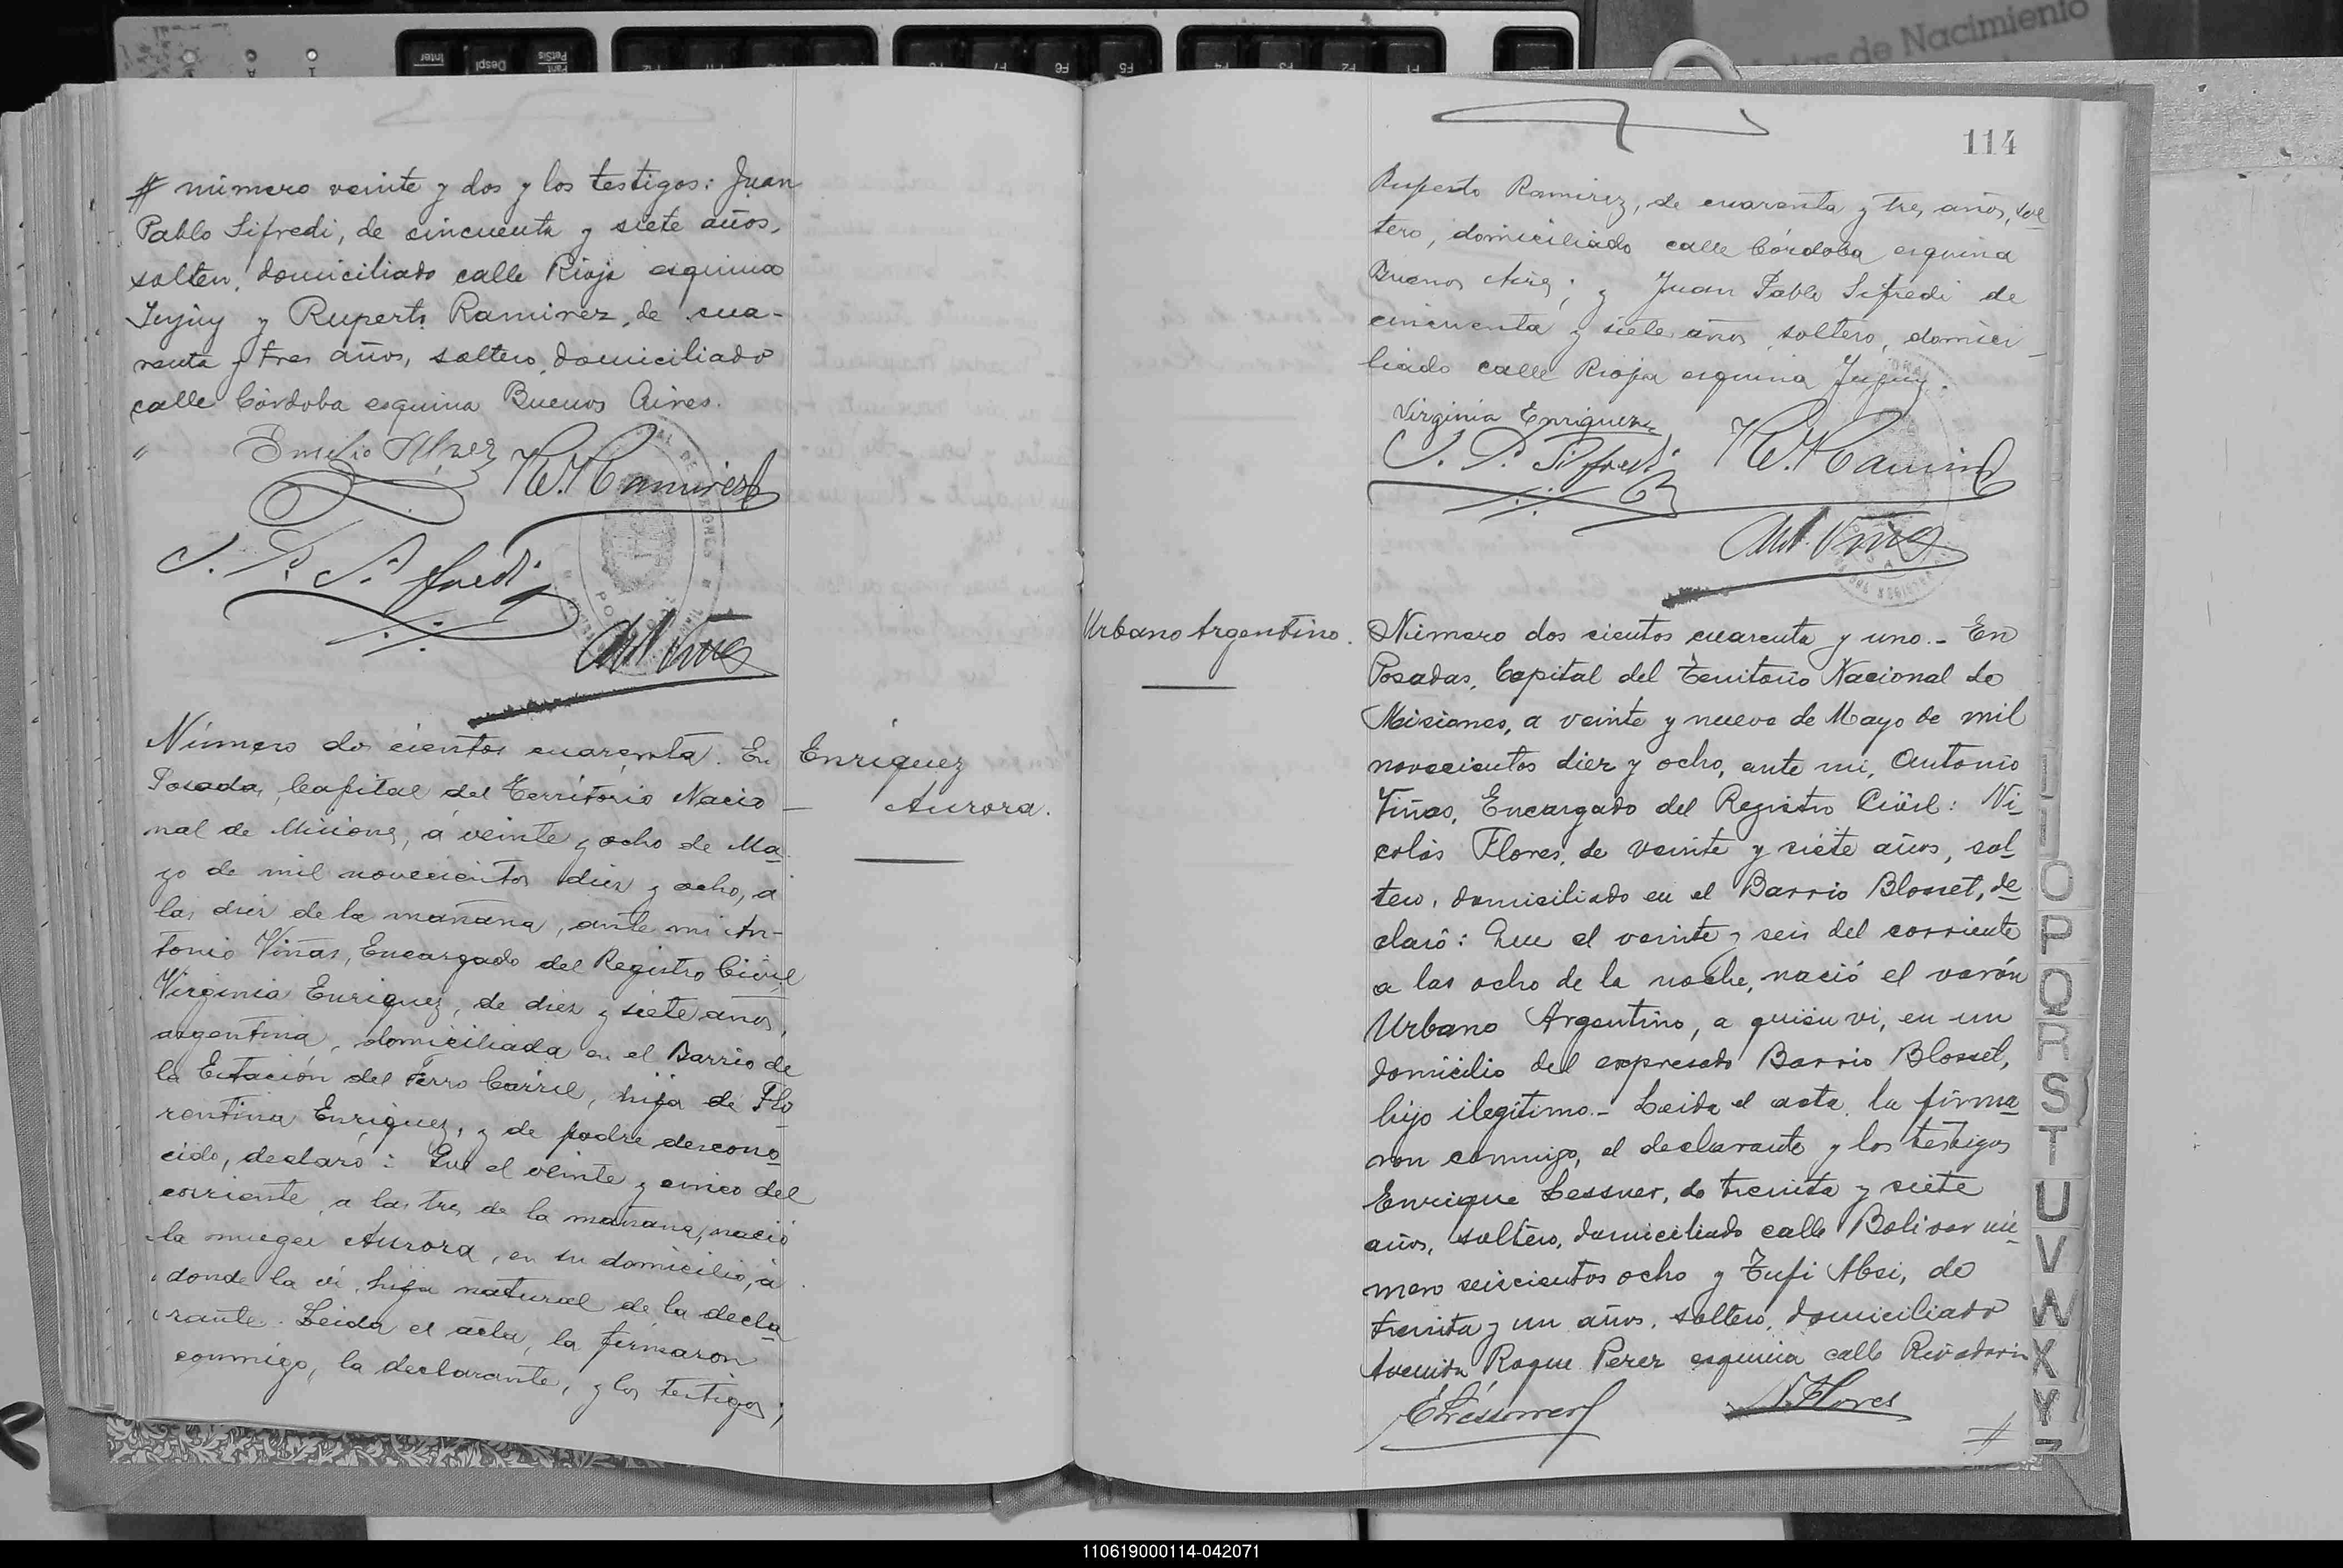 # número veinte y dos y los testigos: Juan
Pablo Sifredi, de cincuenta y siete años,
soltero, domiciliado calle Rioja esquina
Jujuy y Ruperto Ramirez, de cua-
renta y tres años, soltero, domiciliado
calle Córdoba esquina Buenos Aires.
Emilio
R. Ramirez
J. P. Sifredi
Ant. Viñas
Número dos cientos cuarenta. En
Posadas, Capital del Territorio Nacio-
nal de Misiones, á veinte y ocho de Ma-
yo de mil novecientos diez y ocho, a
las diez de la mañana, ante mi An-
tonio Viñas, Encargado del Registro Civil
Virginia Enriquez, de diez y siete años,
argentina, domiciliada en el Barrio de
la Estación del Ferro Carril, hija de Flo-
rentina Enriquez, y de padre descono-
cido, declaró: Que el veinte y cinco del
corriente, a las tres de la mañana, nació
la muger Aurora, en su domicilio, á
donde la vi, hija natural de la decla-
rante. Leida el acta, la firmaron
conmigo, la declarante, y los testigos;
Enriquez
Aurora.
Nacimiento
114
Ruperto Ramirez, de cuarenta y tres años, sol-
tero, domiciliado calle Córdoba esquina
Buenos Aires; y Juan Pablo Sifredi de
cincuenta y siete años, soltero, domici-
liado calle Rioja esquina Jujuy.
Virginia Enriquez
J. P. Sifredi
R. Ramirez
Ant. Viñas
Urbano Argentino.
Número dos cientos cuarenta y uno.- En
Posadas, Capital del Territorio Nacional de
Misiones, a veinte y nueve de Mayo de mil
novecientos diez y ocho, ante mi, Antonio
Viñas, Encargado del Registro Civil: Ni-
colás Flores, de veinte y siete años, sol-
tero, domiciliado en el Barrio Blosset, de-
claró: Que el veinte y seis del corriente
a las ocho de la noche, nació el varón
Urbano Argentino, a quien vi, en un
domicilio del expresado Barrio Blosset,
hijo ilegítimo.- Leida el acta, la firma-
ron conmigo, el declarante y los testigos
Enrique Lessner, de treinta y siete
años, soltero, domiciliado calle Bolivar nú-
mero seiscientos ocho y Tufi Absi, de
treinta y un años, soltero, domiciliado
Avenida Roque Perez esquina calle Rivadavia
E Lessner
N. Flores
#
O
P
Q
R
S
T
U
V
W
X
Y
Z
110619000114-042071